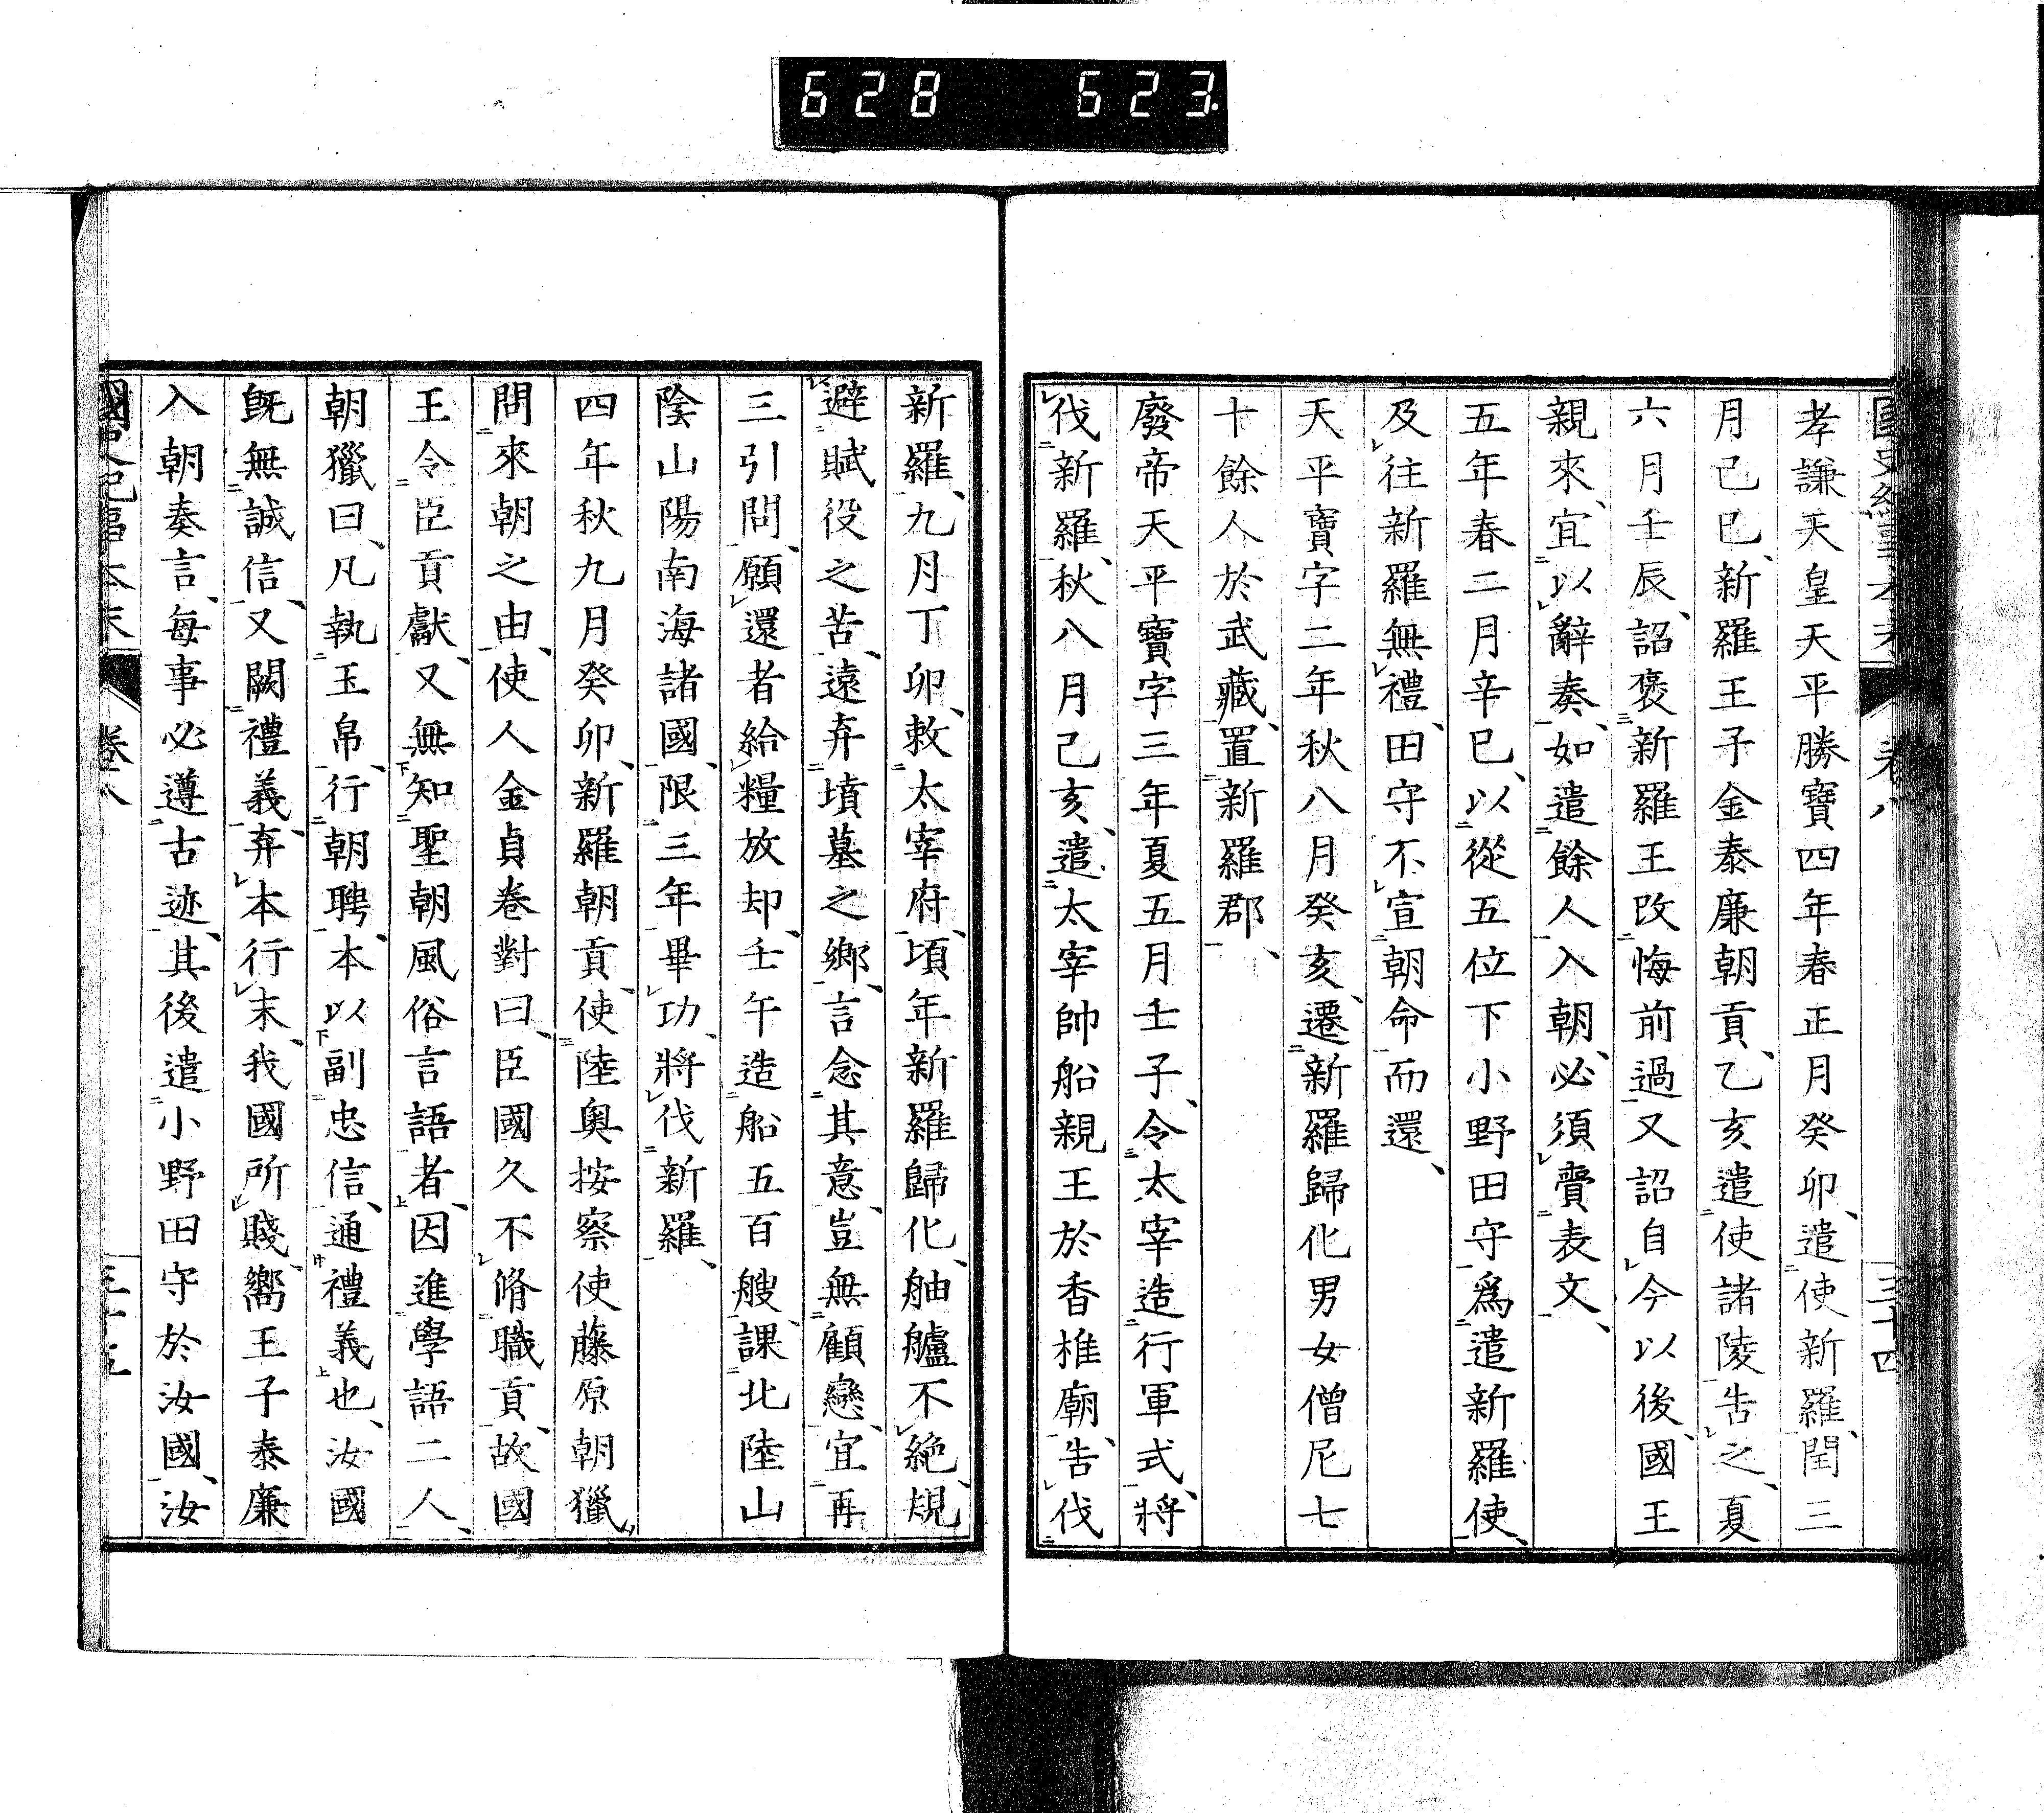 628 623.
孝謙天皇天平勝寶四年春正月癸卯、遣使新羅、閏三
月己巳、新羅王子金泰廉朝貢、乙亥遣使諸陵告之、夏
六月壬辰、詔褒新羅王改悔前過又詔自今以後、國王
親來、宜以辭奏、如遣餘人入朝、必須賫表文、
五年春二月辛巳、以從五位下小野田守爲遣新羅使、
及往新羅無禮、田守不宣朝命而還、
天平寶字二年秋八月癸亥、遷新羅歸化男女僧尼七
十餘人於武藏、置新羅郡、
廢帝天平寶字三年夏五月壬子、令太宰造行軍式、將
伐新羅、秋八月己亥、遣太宰帥船親王於香椎廟、告伐
新羅、九月丁卯、敕太宰府、頃年新羅歸化、舳艫不絶、規
避賦役之苦、遠弃墳墓之鄉、言念其意、豈無顧戀、宜再
三引問、願還者給糧放却、壬午造船五百艘、課北陸山
陰山陽南海諸國、限三年畢功、將伐新羅、
四年秋九月癸卯、新羅朝貢、使陸奥按察使藤原朝獵、
問來朝之由、使人金貞卷對曰、臣國久不脩職貢、故國
王令臣貢獻、又無知聖朝風俗言語者、因進學語二人、
朝獵曰、凡執玉帛、行朝聘、本以副忠信、通禮義也、汝國
旣無誠信、又闕禮義、弃本行末、我國所賤、嚮王子泰廉
入朝奏言、每事必遵古迹、其後遣小野田守於汝國、汝
國史紀事本末 卷八 三十五